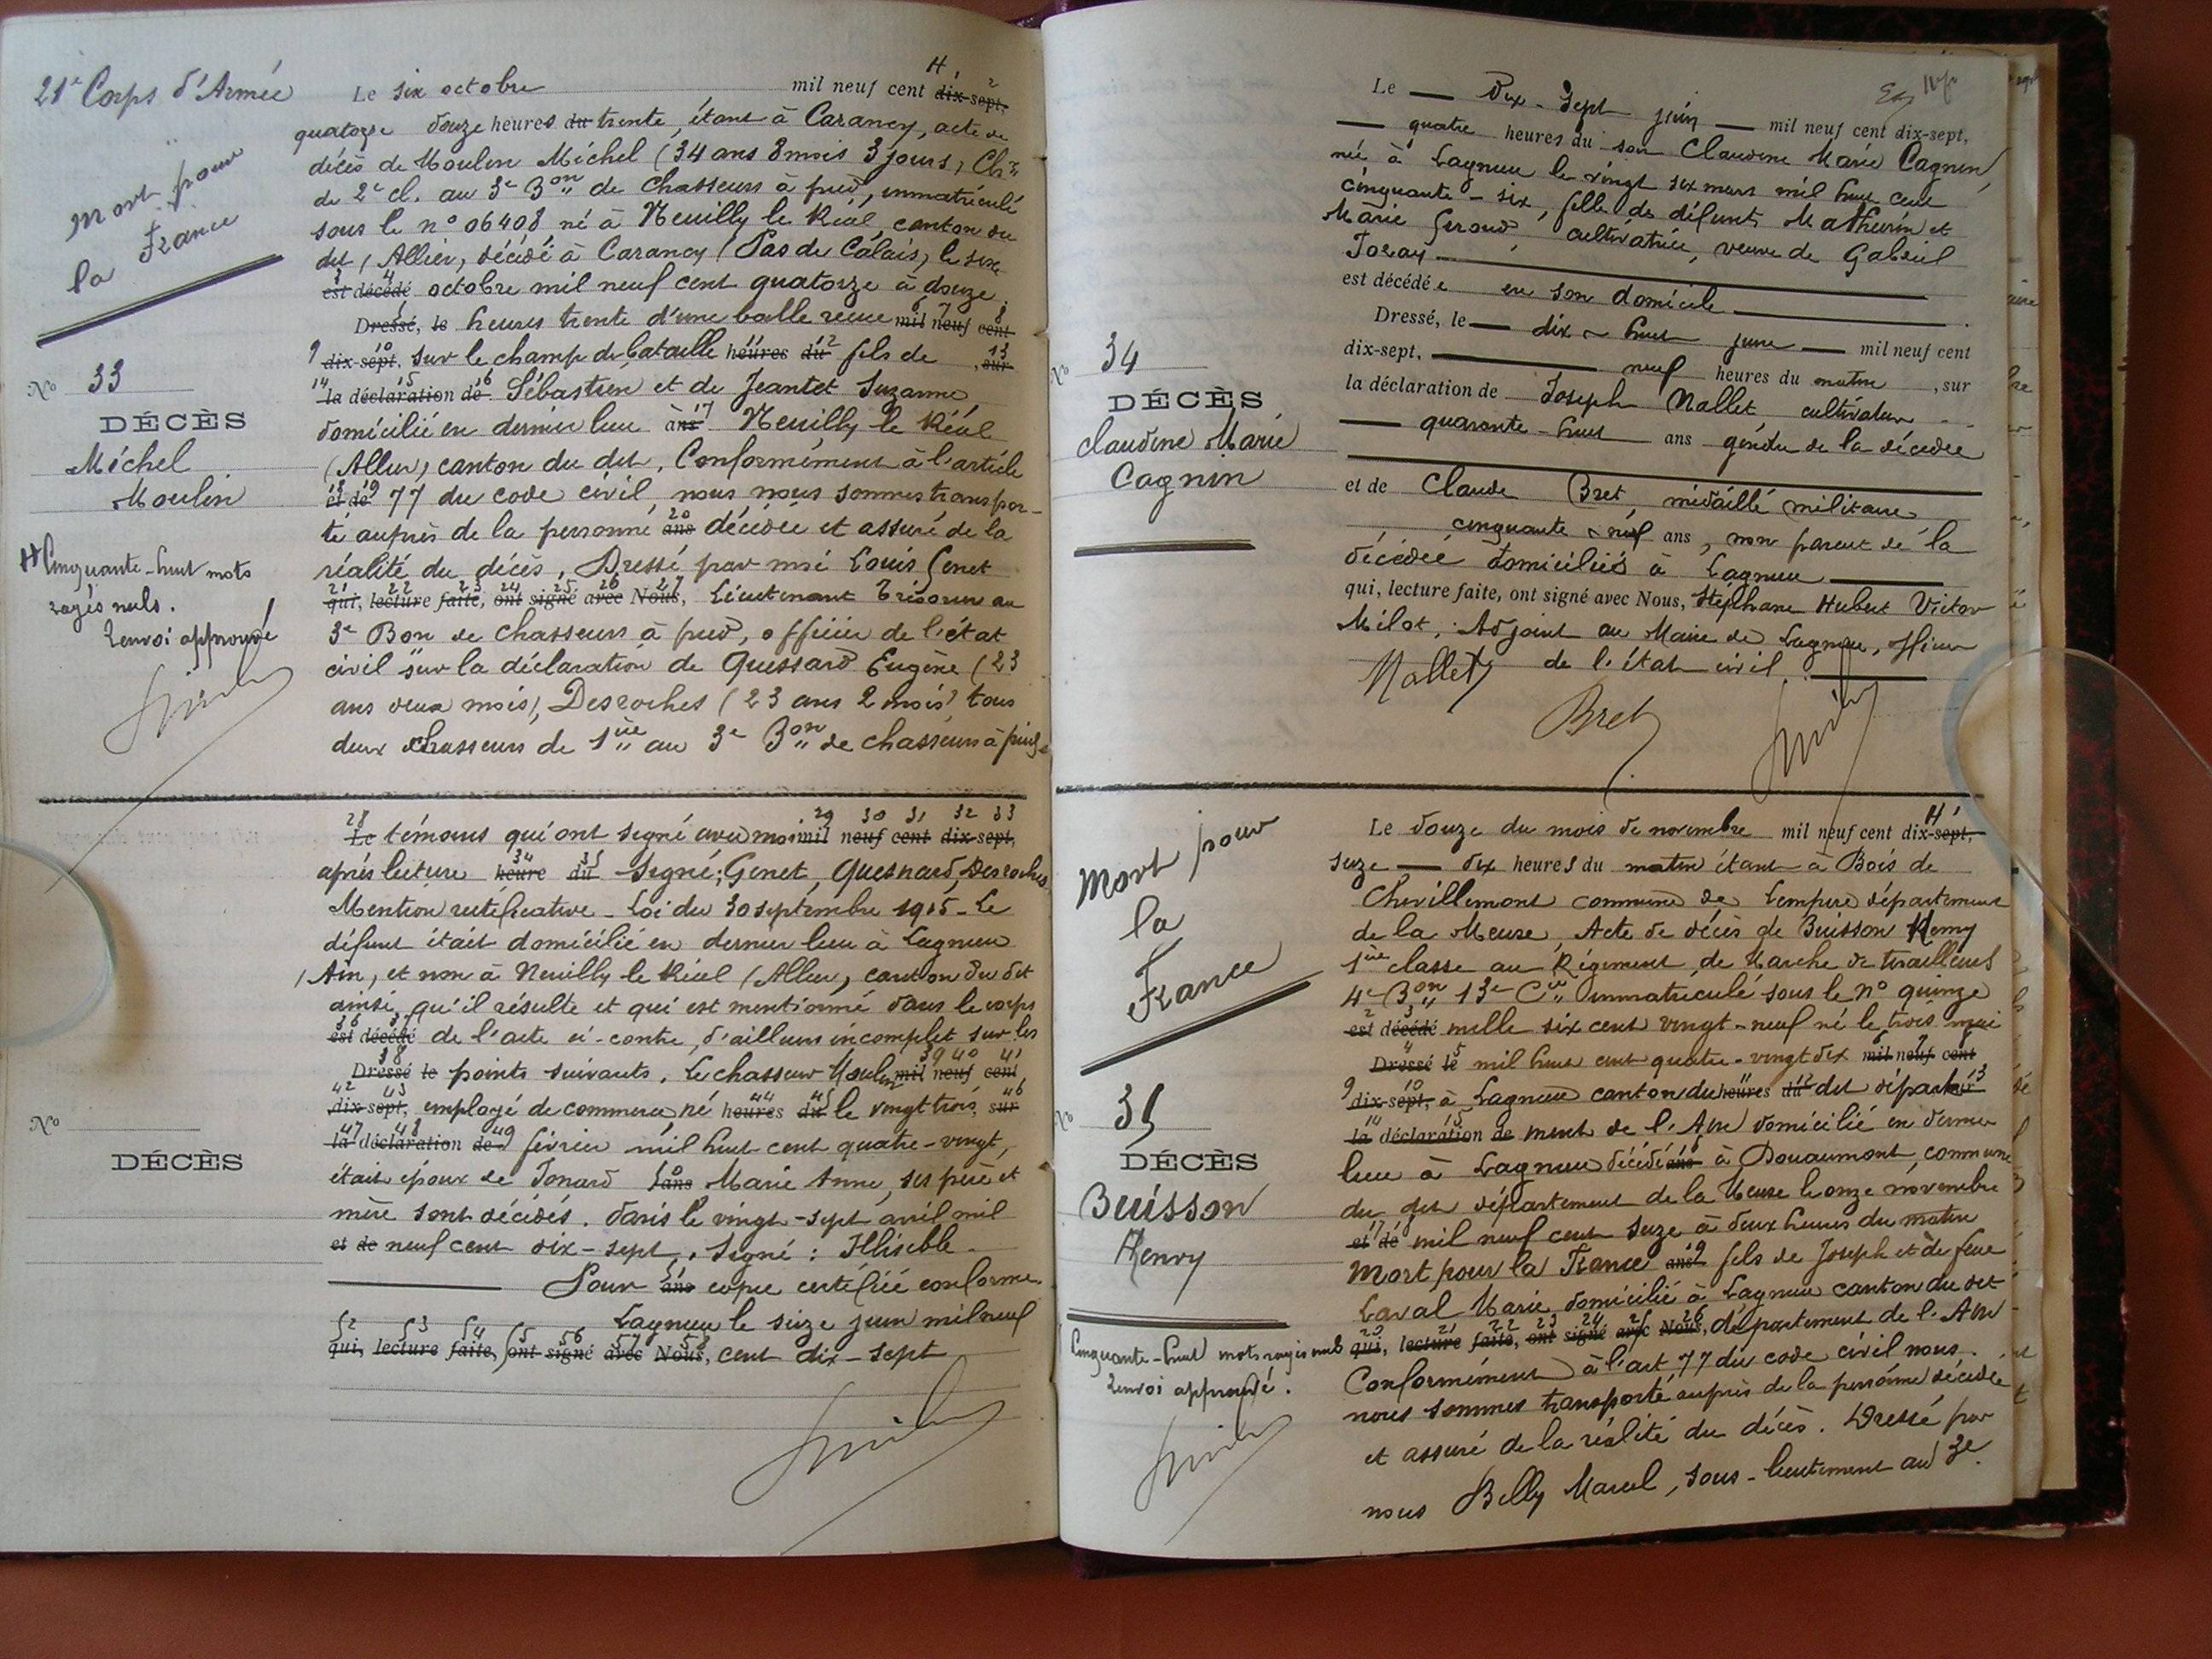 21e Corps d'Armée
Mort pour
la France
No 33
DÉCÈS
Michel
Moulin
H Cinquante-huit mots
rayés nuls.
Renvoi approuvé
Le six octobre mil neuf cent dix-sept,
quatorze douze heures du trente, étant à Carancy, acte de
décès de Moulin Michel (34 ans 8 mois 3 jours) Chr
de 2e cl. au 3e Bon de Chasseurs à pied, immatriculé
sous le no 06408 né à Neuilly le Réal, canton du
dit (Allier) décédé à Carancy (Pas de Calais) le six
est décédé octobre mil neuf cent quatorze à douze
Dressé, le heures trente d'une balle reçue mil neuf cent
dix-sept, sur le champ de bataille heures du fils de , sur
la déclaration de Sébastien et de Jeantet Suzanne
domicilié en dernier lieu à ans Neuilly le Réal
(Allier) canton du dit. Conformément à l'article
et de 77 du code civil, nous nous sommes transpor-
té auprès de la personne ans décédée et assuré de la
réalité du décès. Dressé par moi Louis Genet
qui, lecture faite, ont signé avec Nous, Lieutenant Trésorier au
3e Bon de chasseurs à pied, officier de l'état
civil sur la déclaration de Quessard Eugène (23
ans deux mois), Desroches (23 ans 2 mois) tous
deux chasseurs de 1ière au 3e Bon de chasseurs à pied
Le témoins qui ont signé avec moi mil neuf cent dix-sept,
après lecture heure du Signé: Genet, Quesnard, Desroches
Mention rectificative - Loi du 30 septembre 1915 - Le
défunt était domicilié en dernier lieu à Lagnieu
(Ain, et non à Neuilly le Réal (Allier) canton du dit
ainsi qu'il résulte et qui est mentionné dans le corps
est décédé de l'acte ci-contre, d'ailleurs incomplet sur les
Dressé le points suivants. Le chasseur Moulin mil neuf cent
dix-sept, employé de commerce, né heures du le vingt trois sur
la déclaration de février mil huit cent quatre-vingt,
était époux de Jonard ans Marie Anne, ses père et
mère sont décédés. Paris le vingt-sept avril mil
et de neuf cent dix-sept. Signé: Illisible.
Pour ans copie certifiée conforme
Lagnieu le seize juin mil neuf
qui, lecture faite, ont signé avec Nous, cent dix-sept
No
DÉCÈS
No 34
DÉCÈS
Claudine Marie
Cagnin
Le Dix-Sept juin mil neuf cent dix-sept,
quatre heures du soir Claudine Marie Cagnin,
née à Lagnieu le vingt six mars mil huit cent
cinquante-six, fille de défunts Mathurin et
Marie Giroud, cultivatrice, veuve de Gabriel
Joray
est décédée en son domicile
Dressé, le dix-huit juin mil neuf cent
dix-sept, neuf heures du matin, sur
la déclaration de Joseph Nallet cultivateur
quarante-huit ans gendre de la décédée
et de Claude Bret médaillé militaire
cinquante-neuf ans, non parent de la
décédée domiciliés à Lagnieu
qui, lecture faite, ont signé avec Nous, Stéphane Hubert Victor
Milot, Adjoint au Maire de Lagnieu, officier
de l'état civil.
Nallet
Bret
Mort pour
la
France
No 35
DÉCÈS
Buisson
Henry
Cinquante-huit mots rayés nuls
Renvoi approuvé.
Le douze du mois de novembre mil neuf cent dix-sept,
seize dix heures du matin étant à Bois de
Chevillemont commune de Lempire département
de la Meuse, Acte de décès de Buisson Henry
1ière classe au Régiment de Marche de tirailleurs
4e Bon 13e Cie immatriculé sous le no quinze
est décédé mille six cent vingt-neuf né le trois mai
Dressé le mil huit cent quatre-vingt dix mil neuf cent
dix-sept, à Lagnieu canton du heures du dit départe sur
la déclaration de ment de l'Ain domicilié en dernier
lieu à Lagnieu décédé ans à Douaumont, commune
du dit département de la Meuse le onze novembre
et de mil neuf cent seize à deux heures du matin
Mort pour la France ans fils de Joseph et de feue
Laval Marie domicilié à Lagnieu canton du dit
qui, lecture faite, ont signé avec Nous, département de l'Ain
Conformément à l'art 77 du code civil nous
nous sommes transporté auprès de la personne décédée
et assuré de la réalité du décès. Dressé par
nous Billy Marcel, sous-lieutenant au 3e